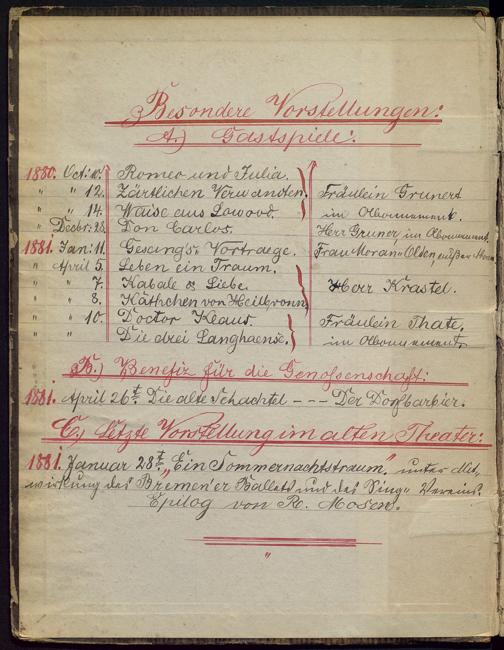 Besondere Vorstellungen:
A.) Gastspiele:
1880. Oct: 10. Romeo und Julia.
" " 12. Zärtlichen Verwandten. Fräulein Grunert
" " 14. Waise aus Lowood. im Abonnement.
" Decbr: 28. Don Carlos. Herr Gruner, im Abonnement.
1881. Jan: 11. Gesangs-Vortraege. Frau Moran-Olden, außer Abonn.
" April 5. Leben ein Traum.
" " 7. Kabale & Liebe. Herr Krastel.
" " 8. Käthchen von Heilbronn.
" " 10. Doctor Klaus. Fräulein Thate,
Die drei Langhaense. im Abonnement.
B.) Benefiz für die Genossenschaft:
1881. April 26t. Die alte Schachtel --- Der Dorfbarbier.
C.) letzte Vorstellung im alten Theater:
1881. Januar 28t. „Ein Sommernachtstraum." unter Mit-
wirkung des Bremen'er Ballets und des Sing-Vereins.
Epilog von R. Mosen.